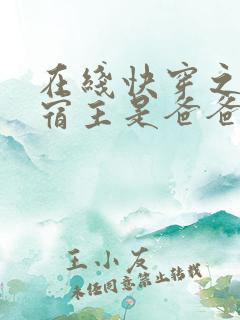 在线快穿之
宿主是爸爸
王小友
未经同意禁止转载